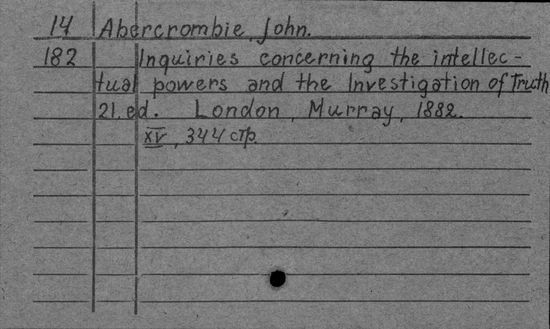 14 Abercrombie, John.
182 Inquiries concerning the intellec-
tual powers and the Investigation of Truth
21. ed. London, Murray, 1882.
XV, 344 стр.